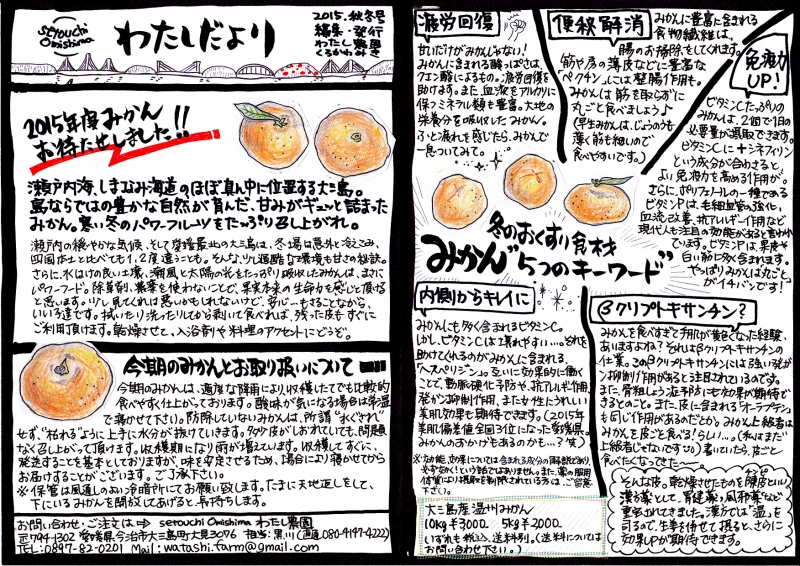 setouchi
Omishima
わたしだより
2015.秋冬号
編集・発行
わたし農園
くろかわあき
2015年度みかん
お待たせしました!!
瀬戸内海、しまなみ海道のほぼ真ん中に位置する大三島。
島ならではの豊かな自然が育んだ、甘みがギュッと詰まった
みかん。寒い冬のパワーフルーツをたっぷり召し上がれ。
瀬戸内の穏やかな気候、そして愛媛最北の大三島は、冬場は意外と冷込み、
四国本土と比べても1、2度違うことも。そんな、少し過酷な環境も甘さの秘訣。
さらに、水はけの良い土壌、潮風と太陽の光をたっぷり吸収したみかんは、まさに
パワーフード。除草剤、農薬を使わないことで、果実本来の生命力を感じて頂ける
と思います。少し見てくれは悪いかもしれないけど、安心・まるごとなから、
いいう達です。拭いたり、洗ったりしてから剥いて食べれば、残った皮もすぐに
ご利用頂けます。乾燥させて、入浴剤や料理のアクセントにどうぞ。
今期のみかんとお取り扱いについて
今期のみかんは、適度な降雨により、収穫したてでも比較的
食べやすく仕上がっております。酸味が気になる場合は常温
で寝かせて下さい。防腐していないみかんは、所謂“水ぐされ”
せず、“枯れる”ように上手に水分が抜けていきます。多少皮がしおれしていても、問題
なく召し上がって頂けます。収穫期になり雨が増えています。収穫してすぐに、
発送することを基本としておりますが、味を安定させるため、場合により寝かせてから
お届けすることがございます。ご了承下さい。
※保管は風通しのよい冷暗所にてお願い致します。たまに天地返しをして、
下にいるみかんを開放してあげると、長持ちします。
お問い合わせ・ご注文は⇒ setouchi Omishima わたし農園
〒794-1302 愛媛県今治市大三島町大見3076 担当:黒川(直通080-4197-4222)
TEL:0897-82-0201 Mail:watashi.farm@gmail.com
疲労回復
甘いだけがみかんじゃない!
みかんに含まれる酸っぱさは、
クエン酸によるもの。疲労回復を
助けます。また、血液をアルカリに
保つミネラル類も豊富。大地の
栄養分を吸収したみかん。
ふと疲れを感じたら、みかんで
一息ついてみて。
便秘解消
みかんに豊富に含まれる
食物繊維は、
腸のお掃除をしてくれます。
筋や房の薄皮などに豊富な
「ペクチン」には整腸作用も。
みかんは筋を取らずに
丸ごと食べましょう♪
(早生みかんは、じょうのうも
薄く筋も細いので
食べやすいです。)
免疫力
UP!
ビタミンCたっぷりの
みかんは、2個で1日の
必要量が摂取できます。
ビタミンCに+シネフィリン
という成分が合わさると、
より免疫力を高める作用が。
さらに、ポリフェノールの一種である
ビタミンPは、毛細血管の強化、
血流改善、抗アレルギー作用など
現代人も注目の効能があると言われ
ています。ビタミンPは、果皮や
白い筋に多く含まれます。
やっぱりみかんは丸ごと
がイチバンです!
冬のおくすり食材
みかん“5つのキーワード”
内側からキレイに
みかんにも多く含まれるビタミンC。
しかし、ビタミンCは壊れやすい…。それを
助けてくれるのがみかんに含まれる、
「ヘスペリジン」。互いに効果的に働く
ことで、動脈硬化予防や、抗アレルギー作用、
発ガン抑制作用、また女性もうれしい
美肌効果も期待できます。(2015年
美肌偏差値全国3位になった愛媛県。
みかんのおかげもあるのかも…?笑)
※効能、効果については含まれる成分の解説であり、
必ず効く!という話ではありません。また、薬の服用
体質により摂取を制限されている方は、ご留意
下さい。
大三島産温州みかん
10kg¥3000. 5kg¥2000.
いずれも税込、送料別。(送料については
お問い合わせ下さい。)
βクリプトキサンチン?
みかんを食べすぎて手がが黄色くなった経験、
ありますよね?それはβクリプトキサンチンの
仕業。このβクリプトキサンチンには強い発ガ
ン抑制作用があると注目されているのです。
また、骨粗しょう症予防にも効果が期待で
きるとのこと。また、皮に含まれる「オーラプテン」
も同じ作用があるのだとか。みかん上級者は
みかんを皮ごと食べるらしい…。(私はまだ
上級者じゃないです:〇)書いていたら、皮ごと
食べたくなってきた〜…
そんな皮。乾燥させたものを陳皮(チンピ)といい、
漢方薬として、胃健薬や風邪薬など
重宝されてきました。漢方では“温”を
司るので、生姜を併せて摂ると、さらに
効果UPが期待できます。